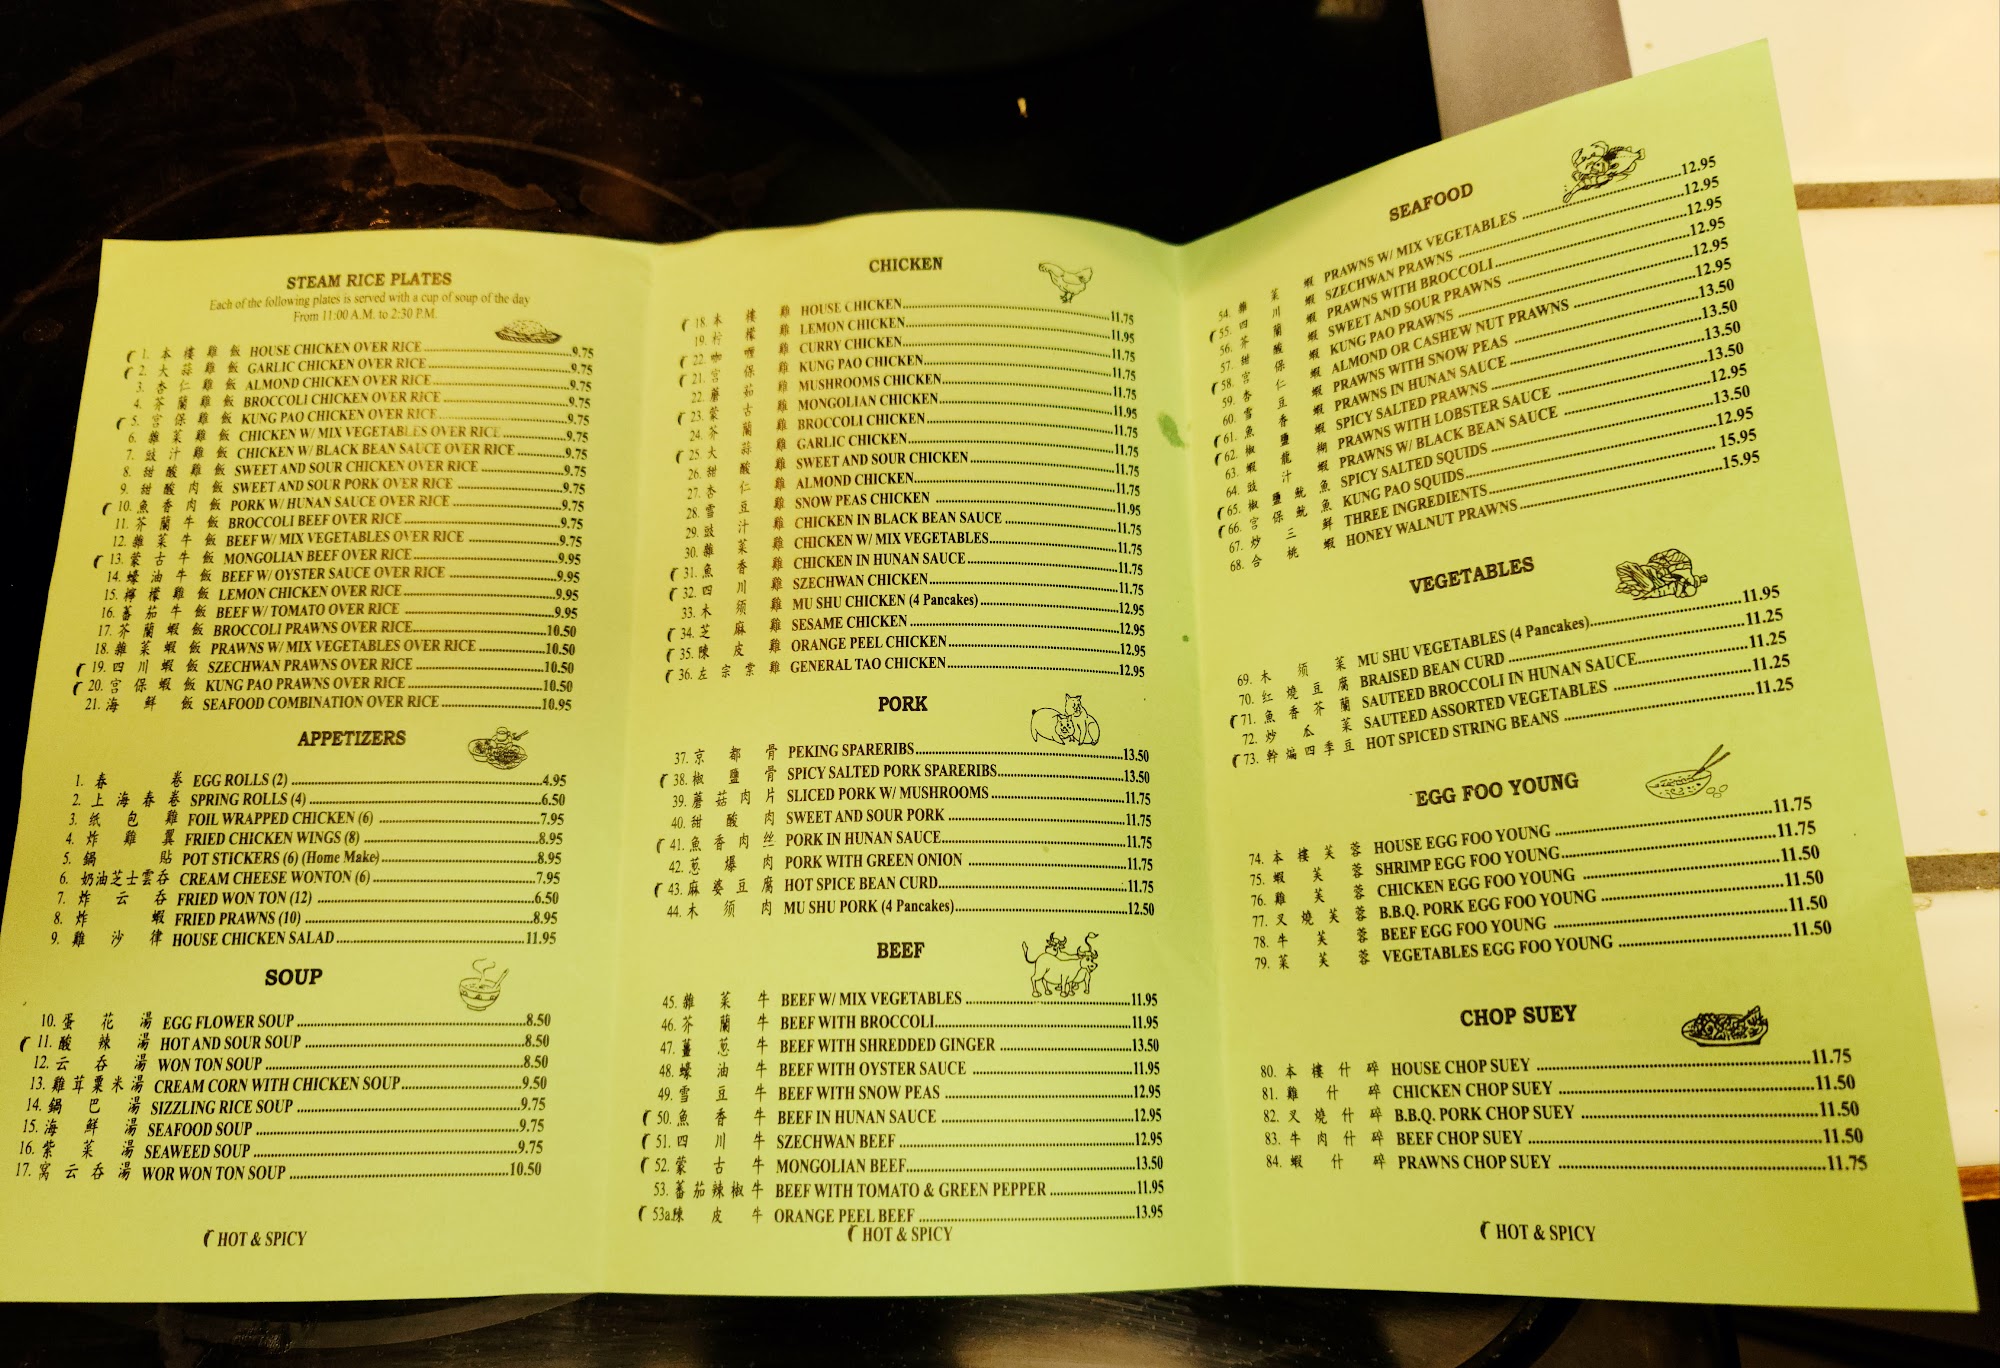 STEAM RICE PLATES
Each of the following plates is served with a cup of soup of the day
From 11:00 A.M. to 2:30 P.M.
1. 本樓雞飯 HOUSE CHICKEN OVER RICE 9.75
2. 大蒜雞飯 GARLIC CHICKEN OVER RICE 9.75
3. 杏仁雞飯 ALMOND CHICKEN OVER RICE 9.75
4. 芥蘭雞飯 BROCCOLI CHICKEN OVER RICE 9.75
5. 宮保雞飯 KUNG PAO CHICKEN OVER RICE 9.75
6. 雜菜雞飯 CHICKEN W/ MIX VEGETABLES OVER RICE 9.75
7. 豉汁雞飯 CHICKEN W/ BLACK BEAN SAUCE OVER RICE 9.75
8. 甜酸雞飯 SWEET AND SOUR CHICKEN OVER RICE 9.75
9. 甜酸肉飯 SWEET AND SOUR PORK OVER RICE 9.75
10. 魚香肉飯 PORK W/ HUNAN SAUCE OVER RICE 9.75
11. 芥蘭牛飯 BROCCOLI BEEF OVER RICE 9.75
12. 雜菜牛飯 BEEF W/ MIX VEGETABLES OVER RICE 9.75
13. 蒙古牛飯 MONGOLIAN BEEF OVER RICE 9.95
14. 蠔油牛飯 BEEF W/ OYSTER SAUCE OVER RICE 9.95
15. 檸檬雞飯 LEMON CHICKEN OVER RICE 9.95
16. 蕃茄牛飯 BEEF W/ TOMATO OVER RICE 9.95
17. 芥蘭蝦飯 BROCCOLI PRAWNS OVER RICE 10.50
18. 雜菜蝦飯 PRAWNS W/ MIX VEGETABLES OVER RICE 10.50
19. 四川蝦飯 SZECHWAN PRAWNS OVER RICE 10.50
20. 宮保蝦飯 KUNG PAO PRAWNS OVER RICE 10.50
21. 海鮮飯 SEAFOOD COMBINATION OVER RICE 10.95
APPETIZERS
1. 春卷 EGG ROLLS (2) 4.95
2. 上海春卷 SPRING ROLLS (4) 6.50
3. 纸包雞 FOIL WRAPPED CHICKEN (6) 7.95
4. 炸雞翼 FRIED CHICKEN WINGS (8) 8.95
5. 鍋貼 POT STICKERS (6) (Home Make) 8.95
6. 奶油芝士雲吞 CREAM CHEESE WONTON (6) 7.95
7. 炸云吞 FRIED WON TON (12) 6.50
8. 炸蝦 FRIED PRAWNS (10) 8.95
9. 雞沙律 HOUSE CHICKEN SALAD 11.95
SOUP
10. 蛋花湯 EGG FLOWER SOUP 8.50
11. 酸辣湯 HOT AND SOUR SOUP 8.50
12. 云吞湯 WON TON SOUP 8.50
13. 雞茸粟米湯 CREAM CORN WITH CHICKEN SOUP 9.50
14. 鍋巴湯 SIZZLING RICE SOUP 9.75
15. 海鮮湯 SEAFOOD SOUP 9.75
16. 紫菜湯 SEAWEED SOUP 9.75
17. 窩云吞湯 WOR WON TON SOUP 10.50
HOT & SPICY
CHICKEN
18. 本樓雞 HOUSE CHICKEN 11.75
19. 柠檬雞 LEMON CHICKEN 11.95
22. 咖喱雞 CURRY CHICKEN 11.75
21. 宮保雞 KUNG PAO CHICKEN 11.75
22. 蘑菇雞 MUSHROOMS CHICKEN 11.75
23. 蒙古雞 MONGOLIAN CHICKEN 11.95
24. 芥蘭雞 BROCCOLI CHICKEN 11.75
25. 大蒜雞 GARLIC CHICKEN 11.75
26. 甜酸雞 SWEET AND SOUR CHICKEN 11.75
27. 杏仁雞 ALMOND CHICKEN 11.75
28. 雪豆雞 SNOW PEAS CHICKEN 11.95
29. 豉汁雞 CHICKEN IN BLACK BEAN SAUCE 11.75
30. 雜菜雞 CHICKEN W/ MIX VEGETABLES 11.75
31. 魚香雞 CHICKEN IN HUNAN SAUCE 11.75
32. 四川雞 SZECHWAN CHICKEN 11.75
33. 木须雞 MU SHU CHICKEN (4 Pancakes) 12.95
34. 芝麻雞 SESAME CHICKEN 12.95
35. 陳皮雞 ORANGE PEEL CHICKEN 12.95
36. 左宗棠雞 GENERAL TAO CHICKEN 12.95
PORK
37. 京都骨 PEKING SPARERIBS 13.50
38. 椒鹽骨 SPICY SALTED PORK SPARERIBS 13.50
39. 蘑菇肉片 SLICED PORK W/ MUSHROOMS 11.75
40. 甜酸肉 SWEET AND SOUR PORK 11.75
41. 魚香肉丝 PORK IN HUNAN SAUCE 11.75
42. 葱爆肉 PORK WITH GREEN ONION 11.75
43. 麻婆豆腐 HOT SPICE BEAN CURD 11.75
44. 木须肉 MU SHU PORK (4 Pancakes) 12.50
BEEF
45. 雜菜牛 BEEF W/ MIX VEGETABLES 11.95
46. 芥蘭牛 BEEF WITH BROCCOLI 11.95
47. 薑葱牛 BEEF WITH SHREDDED GINGER 13.50
48. 蠔油牛 BEEF WITH OYSTER SAUCE 11.95
49. 雪豆牛 BEEF WITH SNOW PEAS 12.95
50. 魚香牛 BEEF IN HUNAN SAUCE 12.95
51. 四川牛 SZECHWAN BEEF 12.95
52. 蒙古牛 MONGOLIAN BEEF 13.50
53. 蕃茄辣椒牛 BEEF WITH TOMATO & GREEN PEPPER 11.95
53a. 陳皮牛 ORANGE PEEL BEEF 13.95
HOT & SPICY
SEAFOOD
54. 雜菜蝦 PRAWNS W/ MIX VEGETABLES 12.95
55. 四川蝦 SZECHWAN PRAWNS 12.95
56. 芥蘭蝦 PRAWNS WITH BROCCOLI 12.95
57. 甜酸蝦 SWEET AND SOUR PRAWNS 12.95
58. 宮保蝦 KUNG PAO PRAWNS 12.95
59. 杏仁蝦 ALMOND OR CASHEW NUT PRAWNS 12.95
60. 雪豆蝦 PRAWNS WITH SNOW PEAS 13.50
61. 魚香蝦 PRAWNS IN HUNAN SAUCE 13.50
62. 椒鹽蝦 SPICY SALTED PRAWNS 13.50
63. 蝦龍糊 PRAWNS WITH LOBSTER SAUCE 13.50
64. 豉汁蝦 PRAWNS W/ BLACK BEAN SAUCE 12.95
65. 椒鹽魷魚 SPICY SALTED SQUIDS 13.50
66. 宮保魷魚 KUNG PAO SQUIDS 12.95
67. 炒三鮮 THREE INGREDIENTS 15.95
68. 合桃蝦 HONEY WALNUT PRAWNS 15.95
VEGETABLES
69. 木须菜 MU SHU VEGETABLES (4 Pancakes) 11.95
70. 红燒豆腐 BRAISED BEAN CURD 11.25
71. 魚香芥蘭 SAUTEED BROCCOLI IN HUNAN SAUCE 11.25
72. 炒瓜菜 SAUTEED ASSORTED VEGETABLES 11.25
73. 幹煸四季豆 HOT SPICED STRING BEANS 11.25
EGG FOO YOUNG
74. 本樓芙蓉 HOUSE EGG FOO YOUNG 11.75
75. 蝦芙蓉 SHRIMP EGG FOO YOUNG 11.75
76. 雞芙蓉 CHICKEN EGG FOO YOUNG 11.50
77. 叉燒芙蓉 B.B.Q. PORK EGG FOO YOUNG 11.50
78. 牛芙蓉 BEEF EGG FOO YOUNG 11.50
79. 菜芙蓉 VEGETABLES EGG FOO YOUNG 11.50
CHOP SUEY
80. 本樓什碎 HOUSE CHOP SUEY 11.75
81. 雞什碎 CHICKEN CHOP SUEY 11.50
82. 叉燒什碎 B.B.Q. PORK CHOP SUEY 11.50
83. 牛肉什碎 BEEF CHOP SUEY 11.50
84. 蝦什碎 PRAWNS CHOP SUEY 11.75
HOT & SPICY